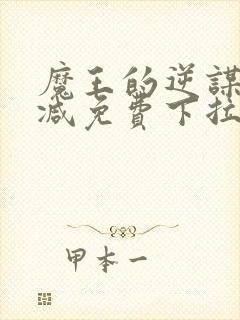 魔王的逆謀
减免費下拉
甲本一